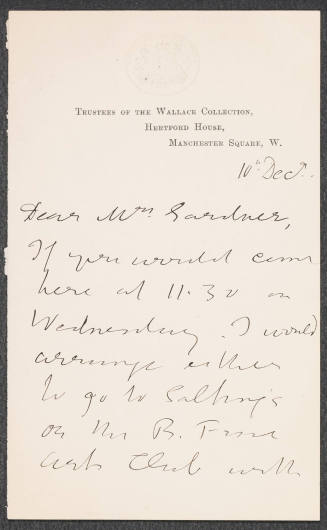 TRUSTEES OF THE WALLACE COLLECTION,
HERTFORD HOUSE,
MANCHESTER SQUARE, W.
10th Decr.
Dear Mrs Gardner,
If you would come
here at 11.30 on
Wednesday. I would
arrange either
to go to Salting's
or the B. Fine
arts Club with